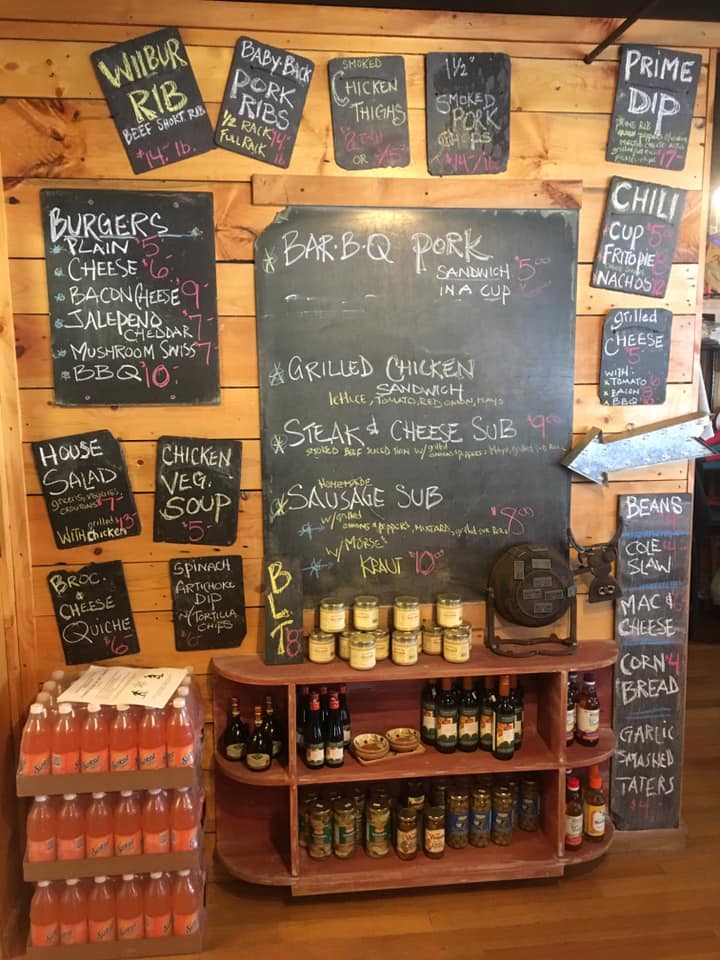 WILBUR
RIB
BEEF SHORT RIB
$14- lb.
BABY-BACK
PORK
RIBS
1/2 RACK 14-
FULL RACK lb
SMOKED
CHICKEN
THIGHS
OR
1 1/2"
SMOKED
PORK
CHOPS
$14-/lb
PRIME
DIP
PRIME RIB
17-
CHILI
CUP $5
FRITO PIE
NACHOS
BURGERS
PLAIN $5-
CHEESE $6-
BACON CHEESE $9-
JALEPENO
CHEDDAR $7-
MUSHROOM SWISS 7-
BBQ $10-
BAR·B·Q PORK
SANDWICH $5.00
IN A CUP
GRILLED CHICKEN
SANDWICH
lettuce, TOMATO, RED ONION, MAYO
STEAK & CHEESE SUB $9.00
SMOKED BEEF SLICED THIN w/ grilled
ONIONS & PEPPERS, MAYO, grilled SUB ROLL
HOMEMADE
SAUSAGE SUB
w/ grilled
ONIONS & PEPPERS, MUSTARD, grilled SUB ROLL $8.00
w/ MORSE'S
KRAUT $10.00
grilled
CHEESE
$5-
WITH:
TOMATO 6
BACON 8
BBQ
HOUSE
SALAD
greens, VEGGIES,
CROUTONS $7-
WITH grilled chicken $13-
CHICKEN
VEG.
SOUP
$5-
BROC.
&
CHEESE
QUICHE
$6-
SPINACH
ARTICHOKE
DIP
W/ TORTILLA
CHIPS
$6-
BLT
$8-
BEANS
COLE
SLAW
MAC &
CHEESE
CORN
BREAD
$4
GARLIC
SMASHED
TATERS
$4-